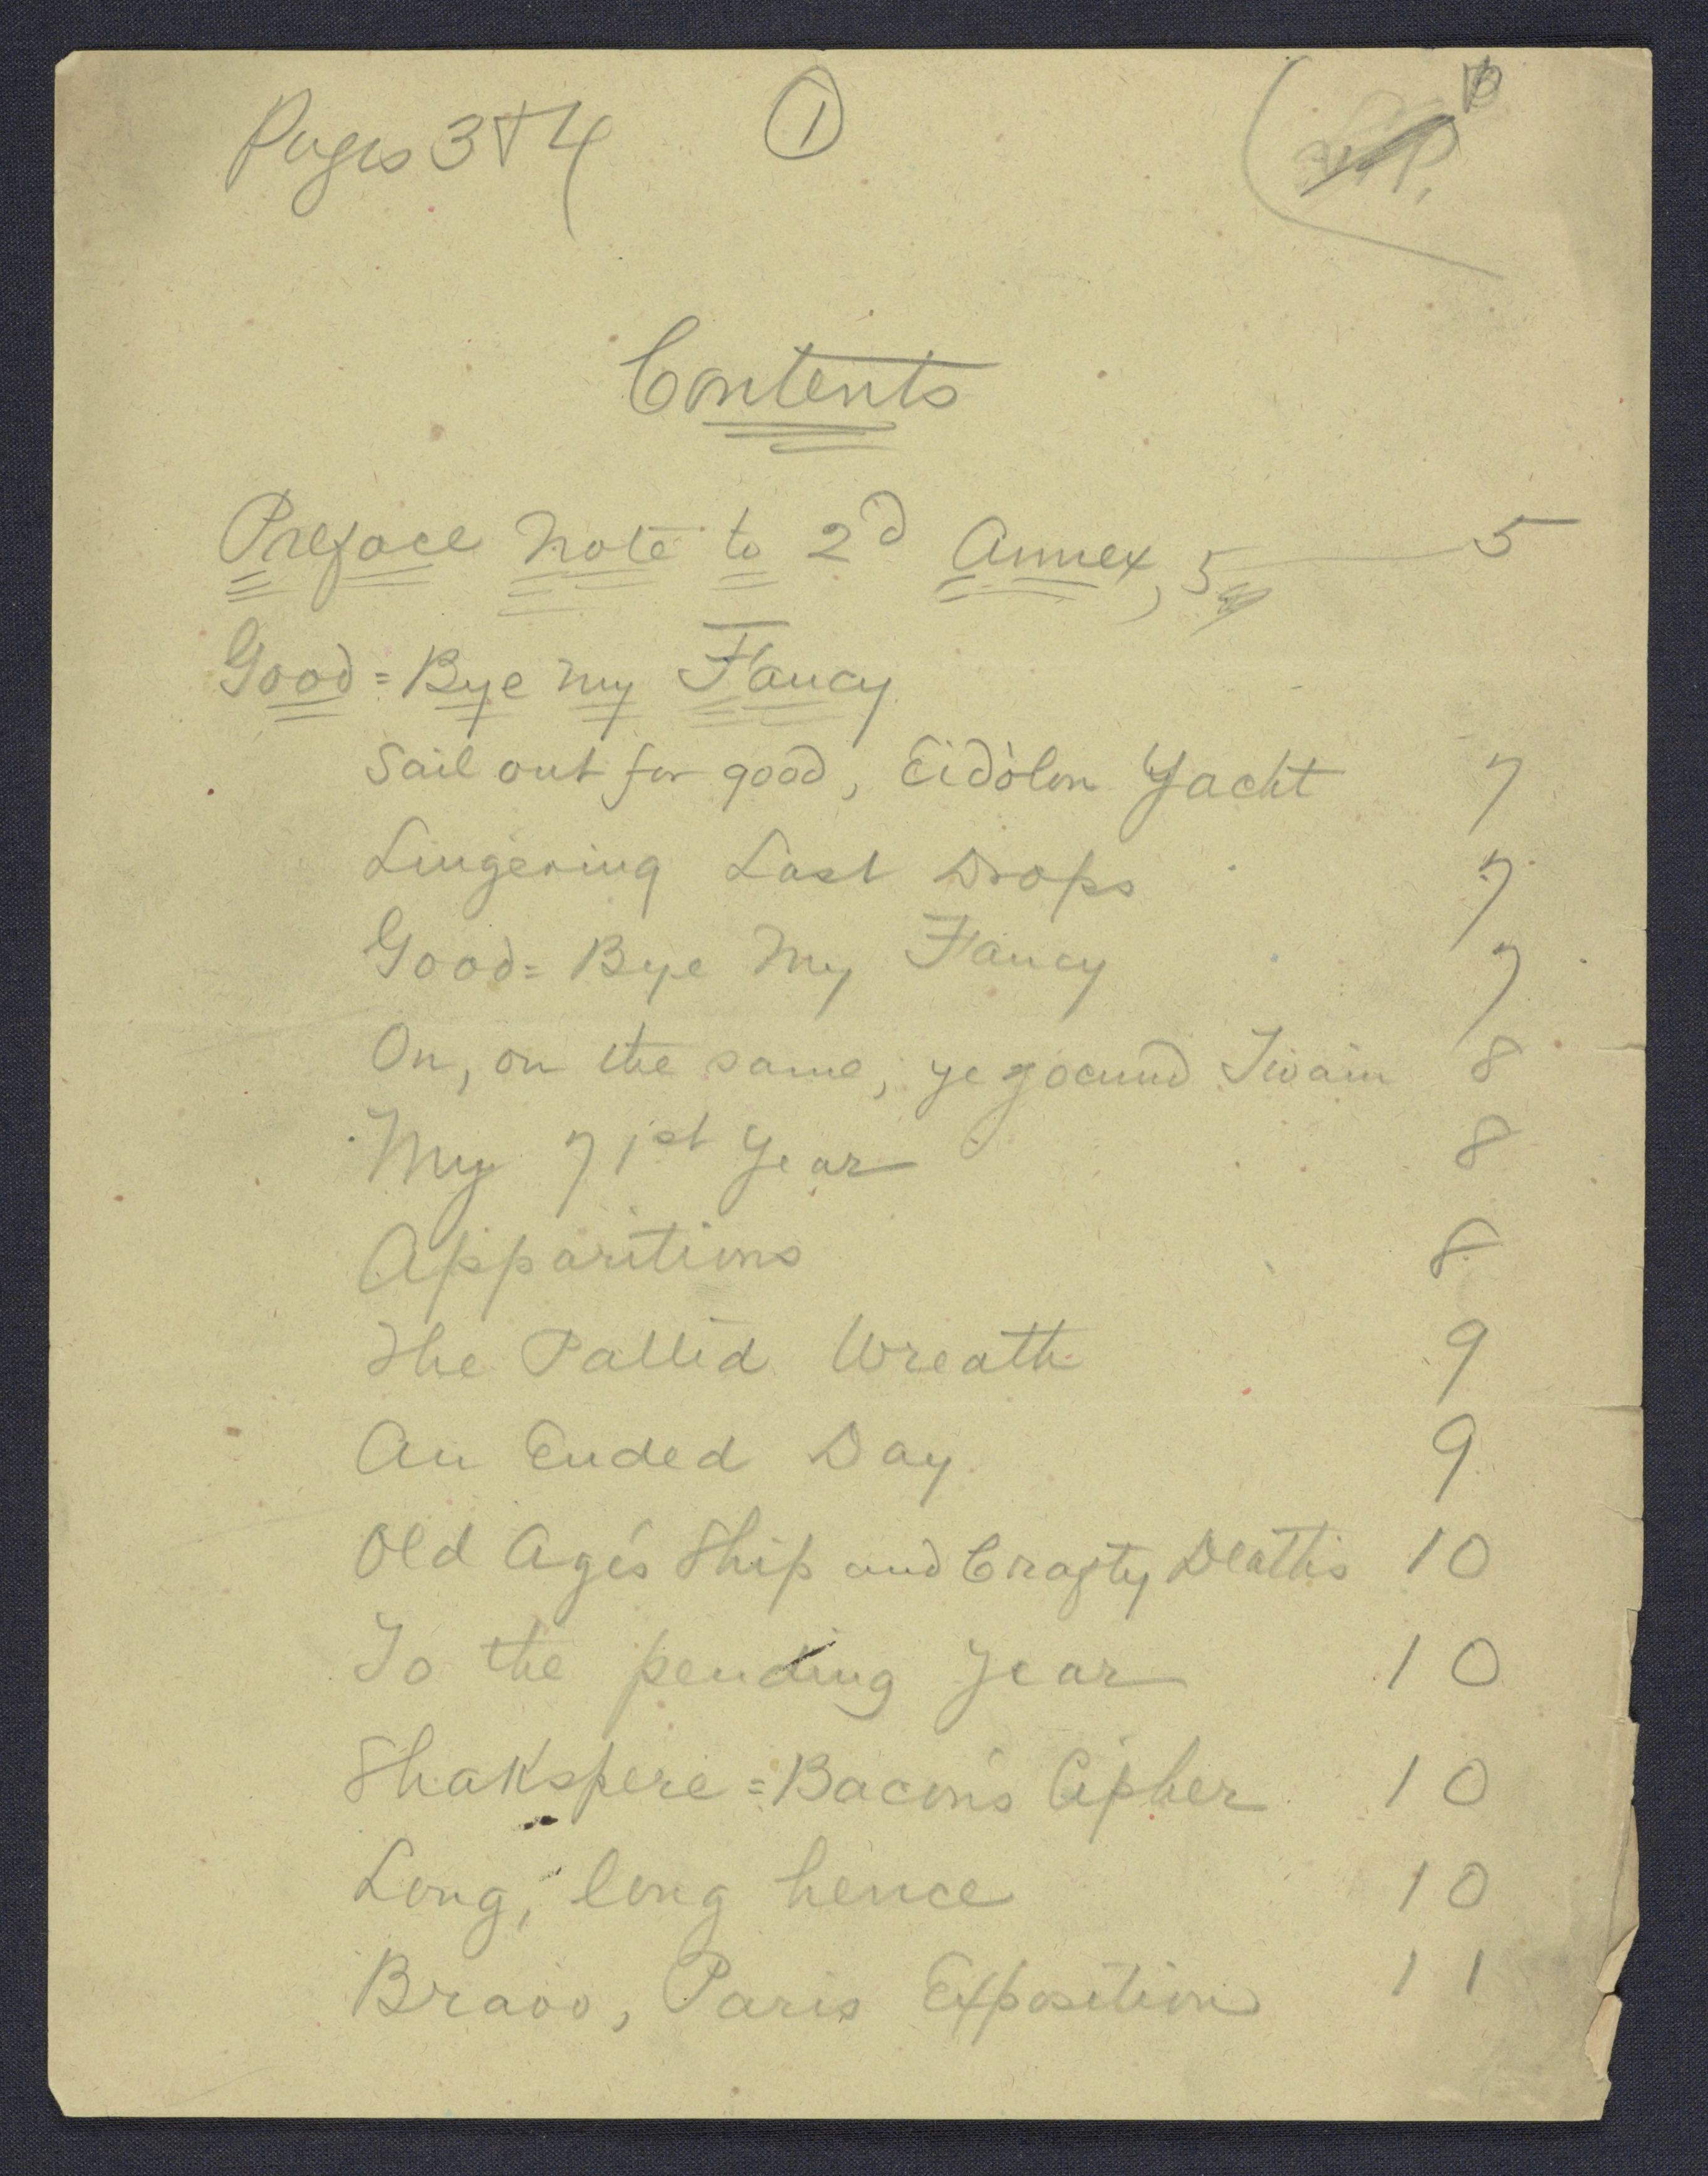 Pages 3 & 4 1
Contents
Preface Note to 2d Annex, 5 5
Good=Bye my Fancy
Sail out for good, Eidòlon Yacht 7
Lingering Last Drops 7
Good=Bye My Fancy 7
On, on the same, ye jocund Twain 8
My 71st Year 8
Apparitions 8
The Pallid Wreath 9
An Ended Day 9
Old Age's Ship and Crafty Death's 10
To the pending Year 10
Shakspere=Bacon's Cipher 10
Long, long hence 10
Bravo, Paris Exposition 11